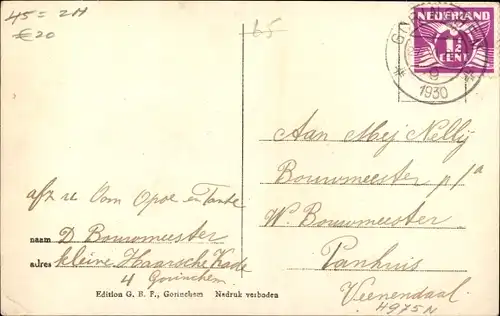 45 = 2H
€20
65
NEDERLAND
1½
CENT
GORINCHEM
9
1930
Aan Mej Nelly
Bouwmeester p/a
W. Bouwmeester
Panhuis
Veenendaal
4975N
afz u Oom Opoe en Tante
naam D Bouwmeester
adres kleine Haarsche Kade
4 Gorinchem
Edition G. B. F., Gorinchem Nadruk verboden